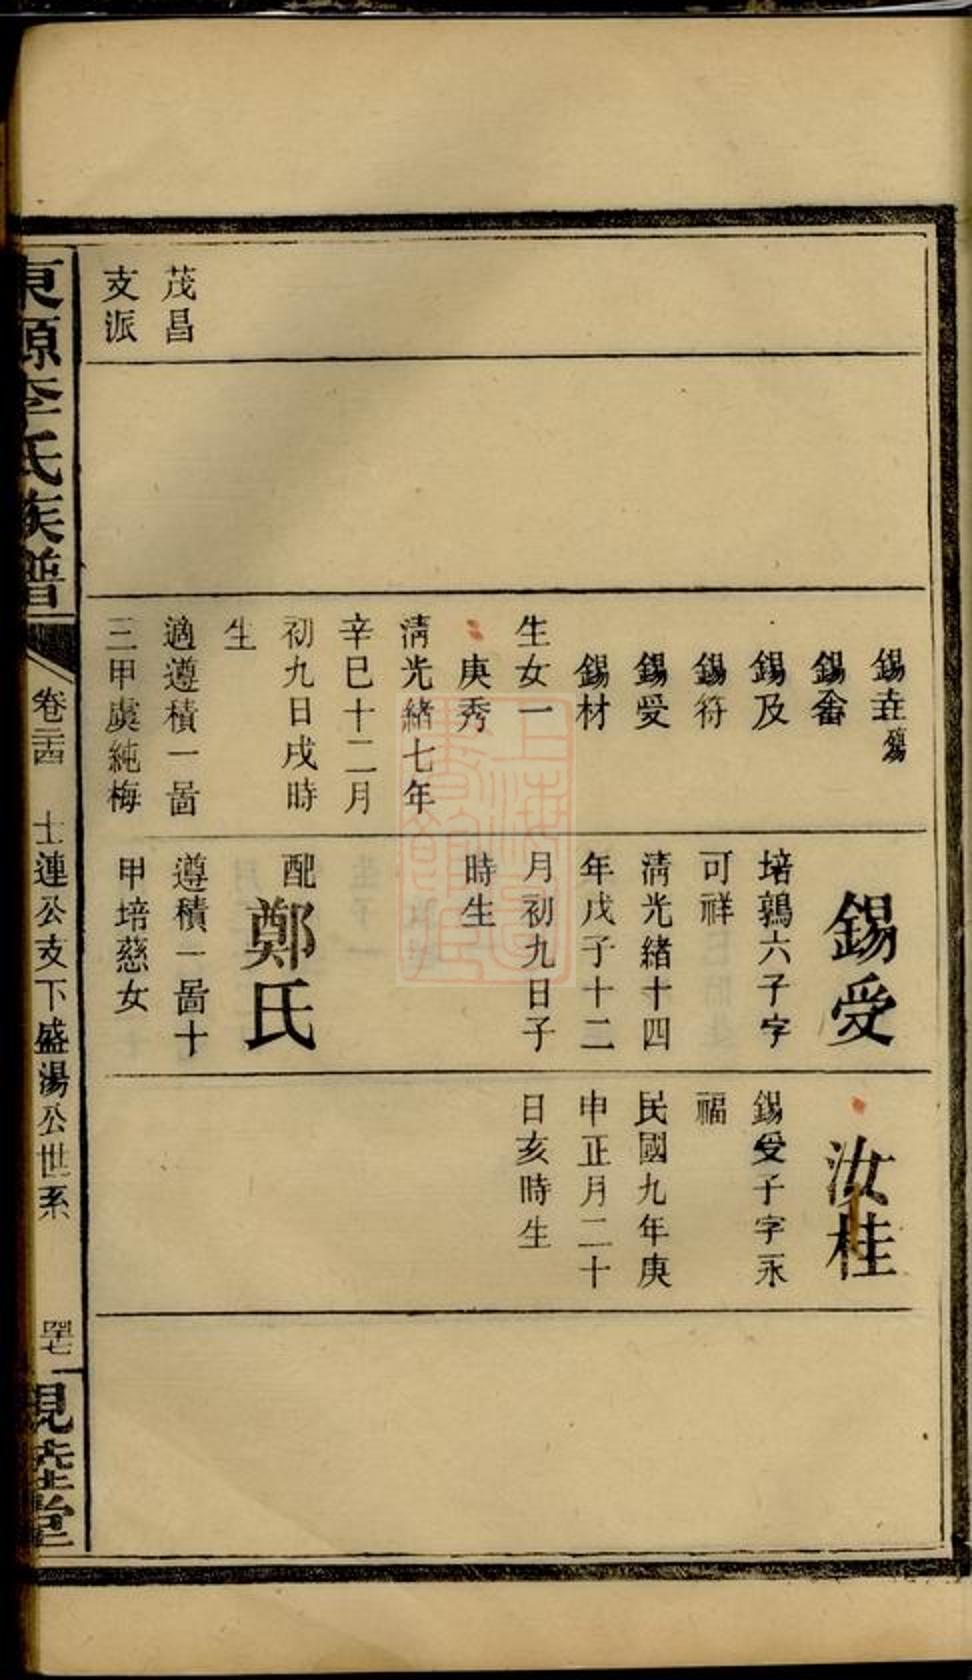 茂昌
支派
錫垚殤
錫畬
錫及
錫符
錫受
錫材
生女一
庚秀
清光緒七年
辛巳十二月
初九日戌時
生
適遵積一啚
三甲虞純梅
錫受
培鶉六子字
可祥
清光緒十四
年戊子十二
月初九日子
時生
配鄭氏
遵積一啚十
甲培慈女
汝桂
錫受子字永
福
民國九年庚
申正月二十
日亥時生
東源李氏族譜
卷二十四
士連公支下盛湯公世系
四十七
現陸堂
上海圖書館藏